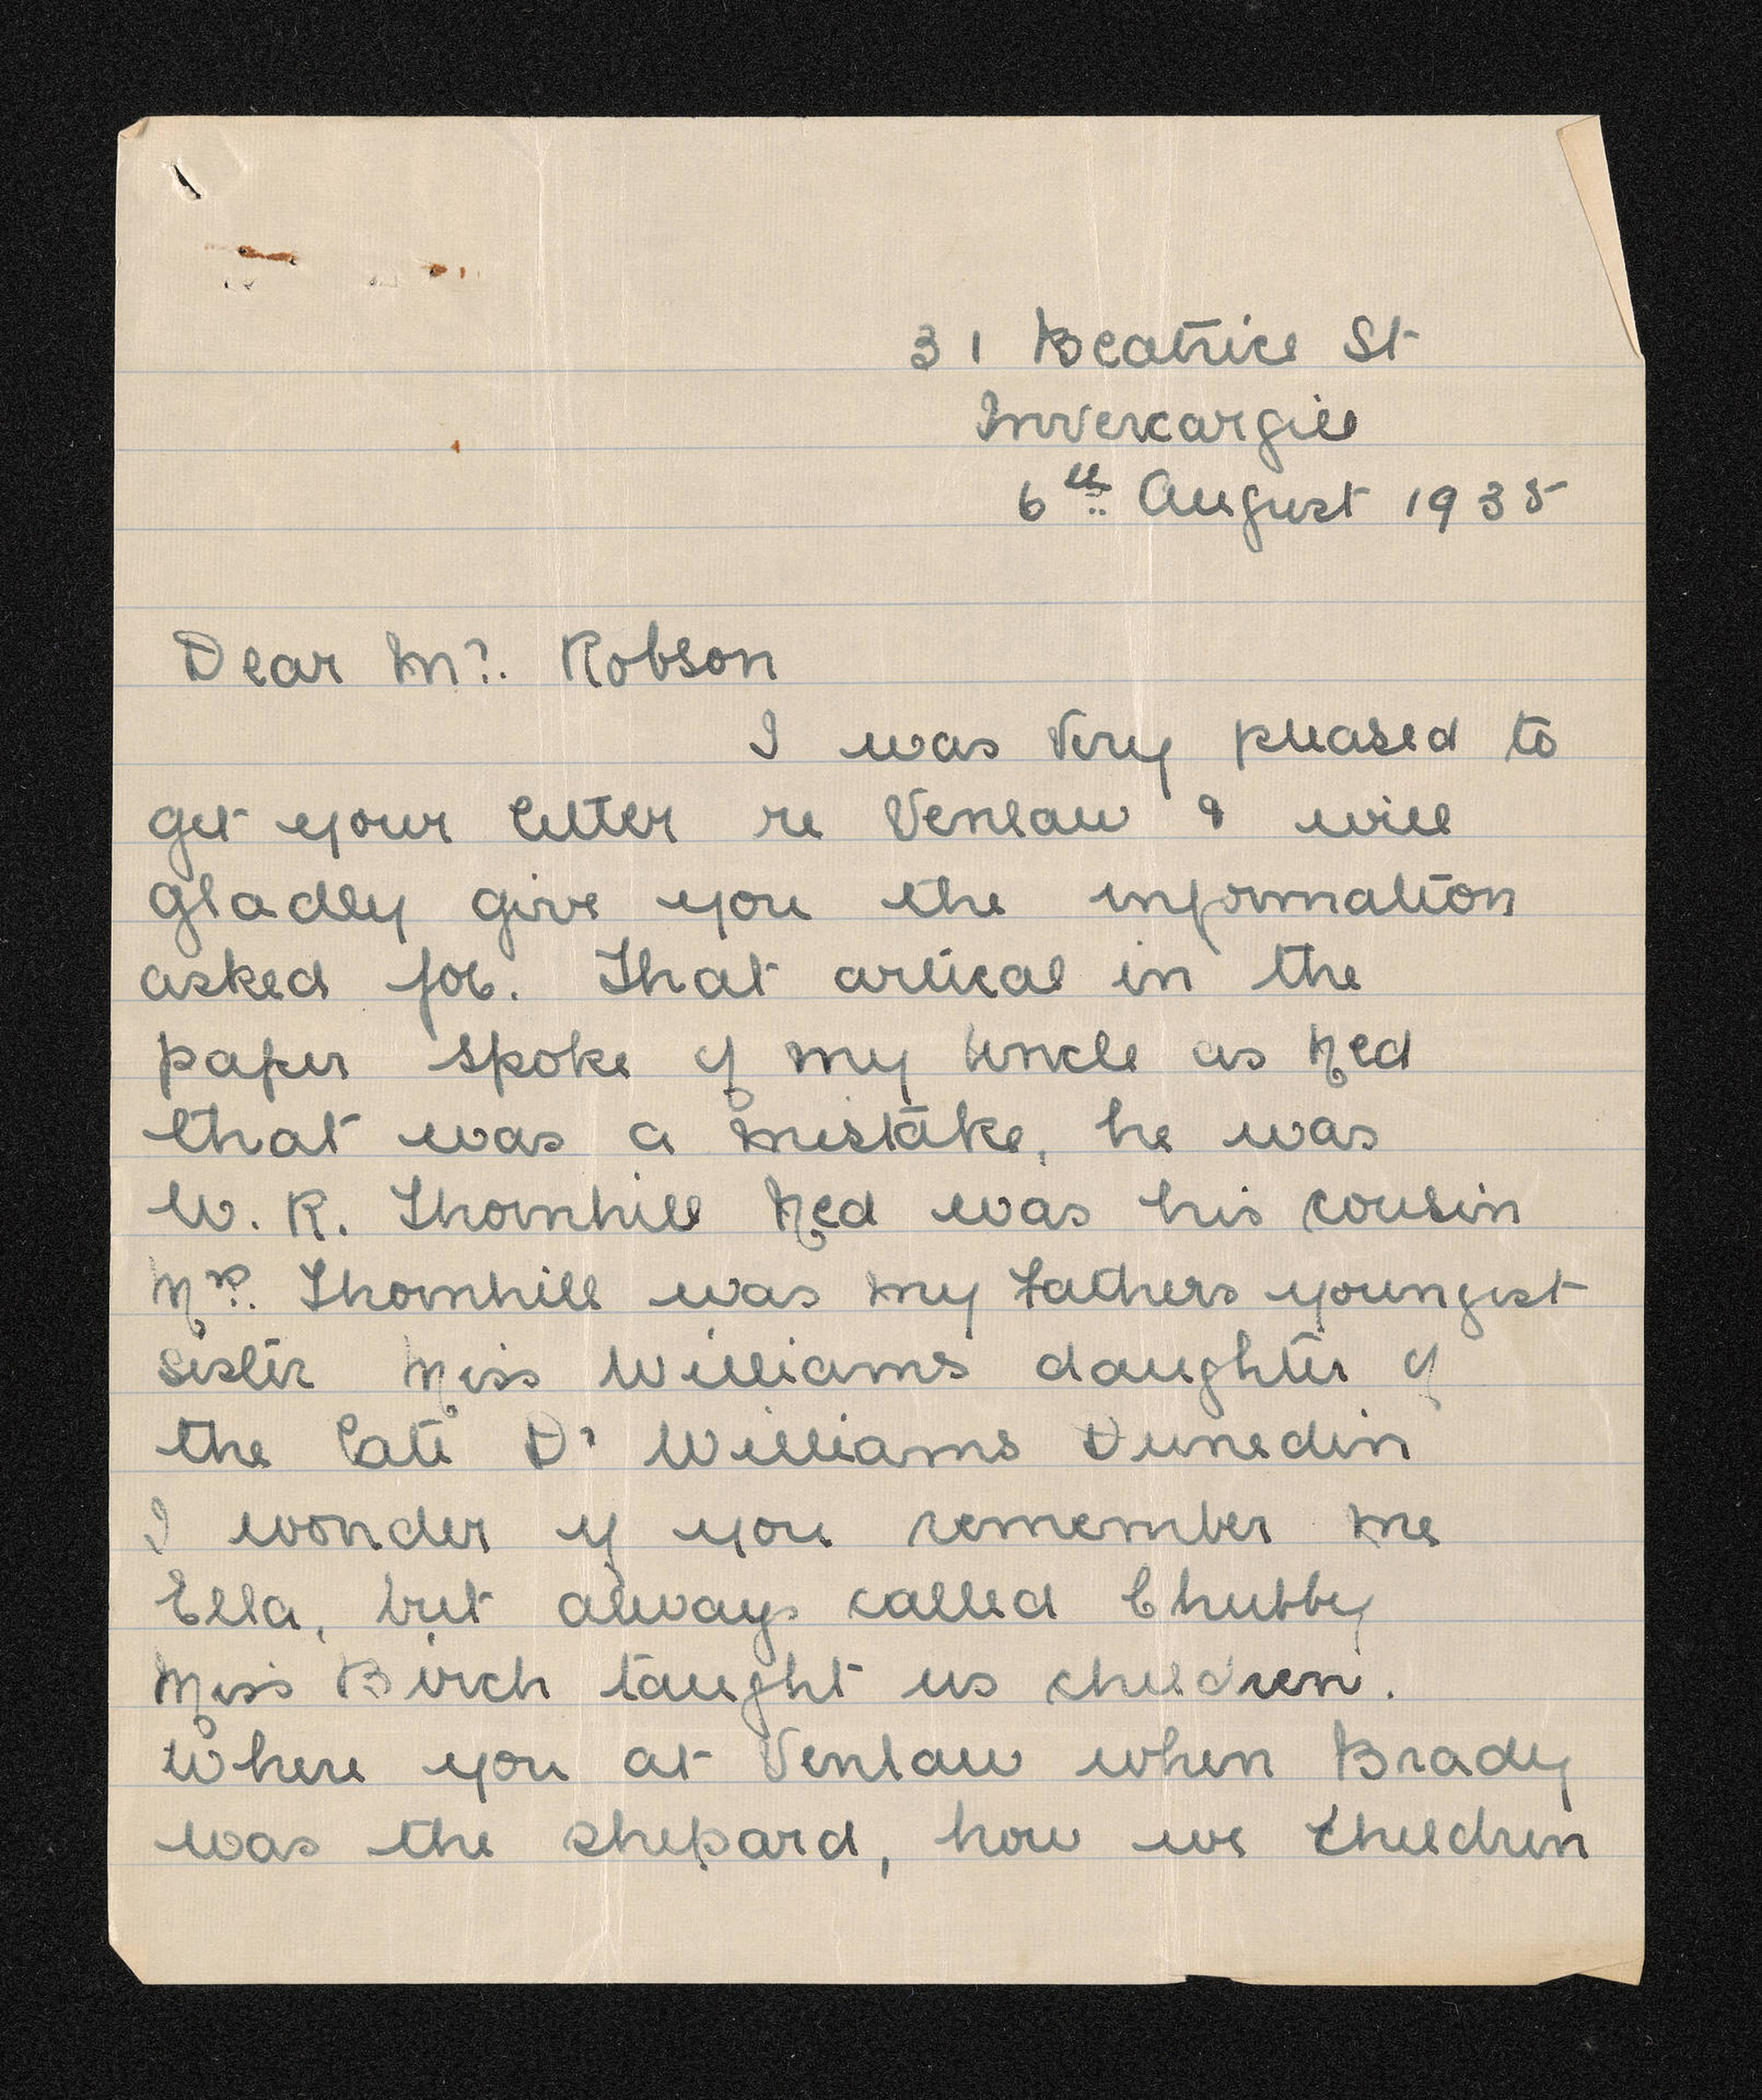 31 Beatrice St
Invercargill
6th August 1935
Dear Mr. Robson
I was very pleased to
get your letter re Venlaw & will
gladly give you the information
asked for. That artical in the
paper spoke of my Uncle as Ned
that was a mistake, he was
W. R. Thornhill Ned was his cousin
Mrs. Thornhill was my Fathers youngest
sister Miss Williams daughter of
the late Dr Williams Dunedin
I wonder if you remember me
Ella, but always called Chubby
Miss Birch taught us children.
Where you at Venlaw when Brady
was the shepard, how we children